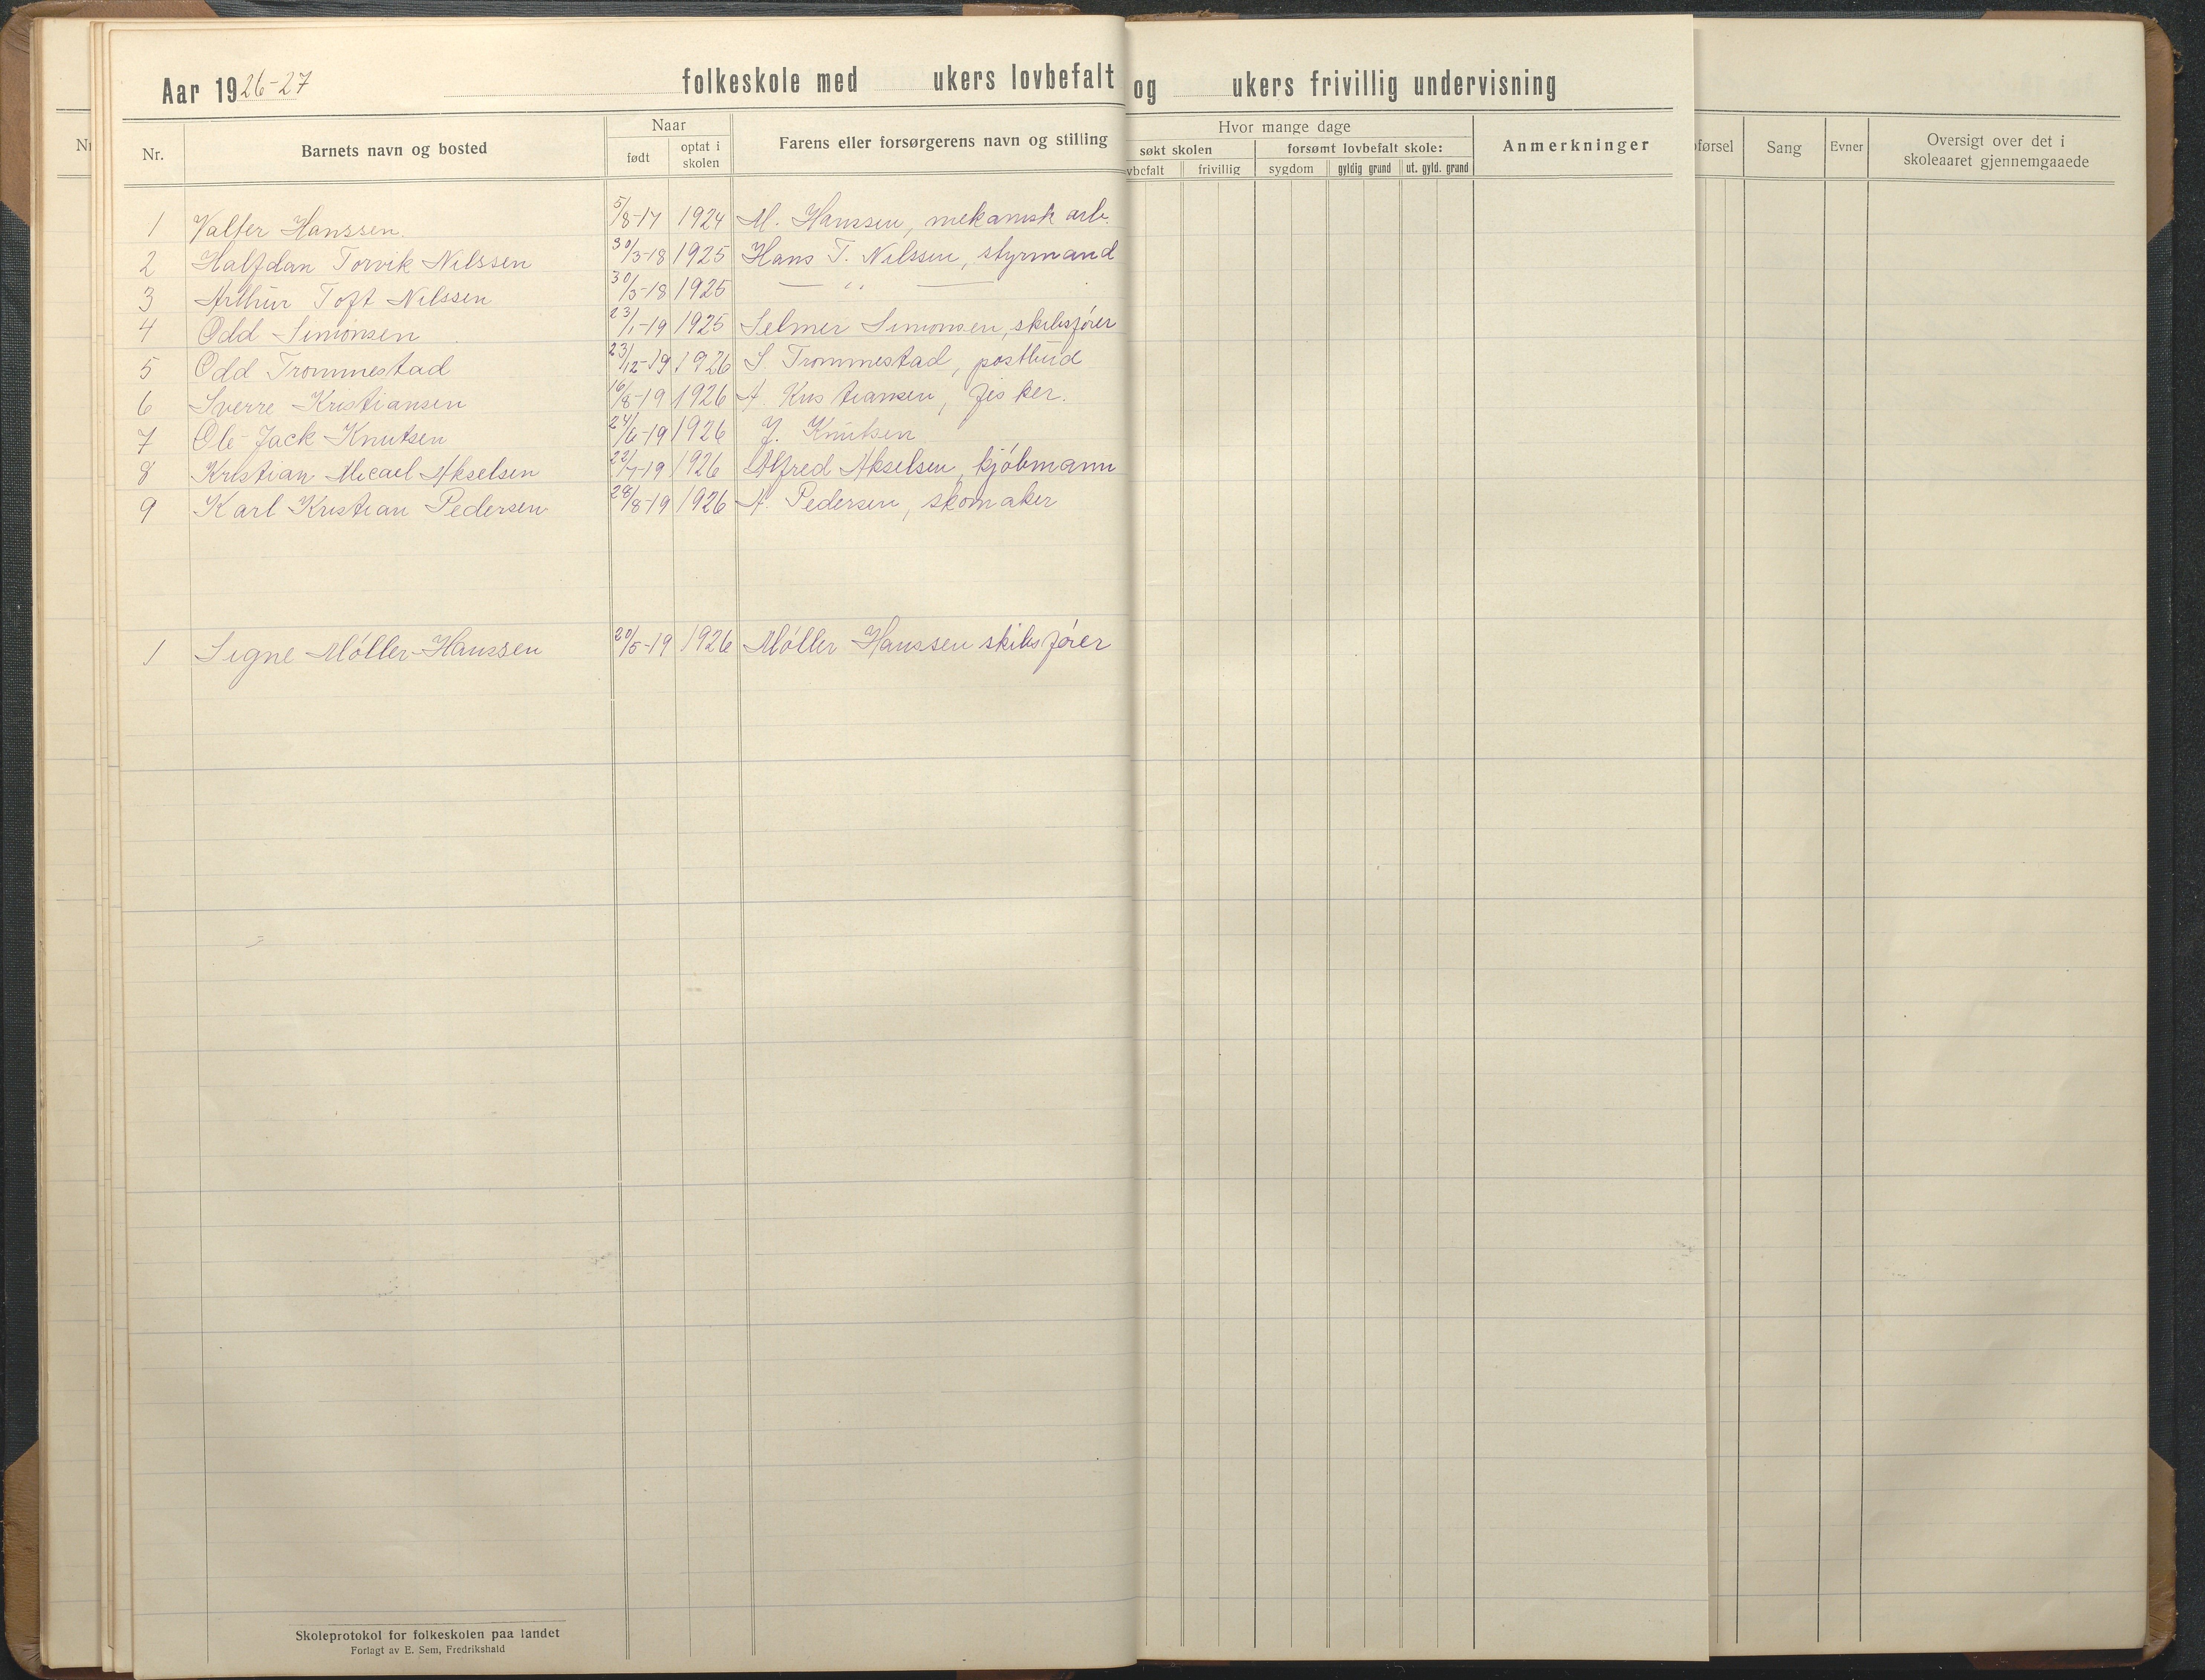 Aar 1926-27 folkeskole med ukers lovbefalt og ukers frivillig undervisning
Nr. Barnets navn og bosted Naar født optat i skolen Farens eller forsørgerens navn og stilling
Hvor mange dage
søkt skolen forsømt lovbefalt skole: Anmerkninger
vbefalt frivillig sygdom gyldig grund ut. gyld. grund
førsel Sang Evner Oversigt over det i skoleaaret gjennemgaaede
1 Valter Hanssen. 5/8-17 1924 M. Hanssen, mekanisk arb.
2 Halfdan Torvik Nilssen 30/3-18 1925 Hans T. Nilssen, styrmand
3 Arthur Toft Nilssen 30/3-18 1925 — ,, —
4 Odd Simonsen 23/1-19 1925 Selmer Simonsen, skibsfører
5 Odd Trommestad 23/12-19 1926 S Trommestad, postbud
6 Sverre Kristiansen 16/8-19 1926 A. Kristiansen, fisker.
7 Ole Jack Knutsen 24/6-19 1926 J. Knutsen
8 Kristian Micael Akselsen 22/7-19 1926 Alfred Akselsen, kjøbmann
9 Karl Kristian Pedersen 28/8-19 1926 A. Pedersen, skomaker
1 Signe Møller-Hanssen 20/5-19 1926 Møller Hanssen skibsfører
Skoleprotokol for folkeskolen paa landet
Forlagt av E. Sem, Fredrikshald